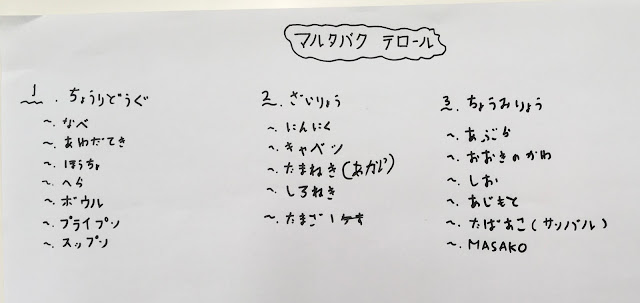 マルタバク テロール
1. ちょうりどうぐ
~. なべ
~. あわだてき
~. ほうちょ
~. へら
~. ボウル
~. フライプン
~. スップン
2. ざいりょう
~. にんにく
~. キャベツ
~. たまねき(あかい)
~. しろねき
~. たまご 1
3. ちょうみりょう
~. あぶら
~. おおきのかわ
~. しお
~. あじもと
~. たばあこ(サンバル)
~. MASAKO